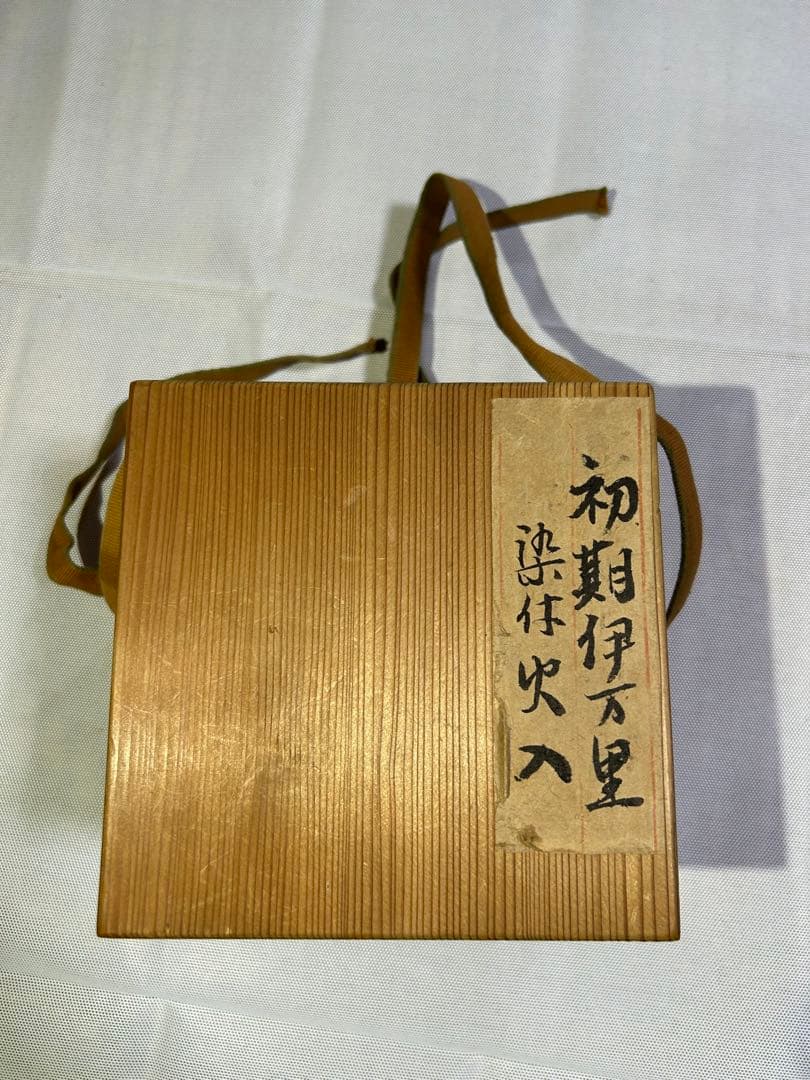 初期伊万里
染付火入